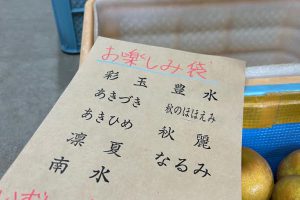 お楽しみ袋
彩玉 豊水
あきづき 秋のほほえみ
あきひめ 秋麗
凛夏 なるみ
南水